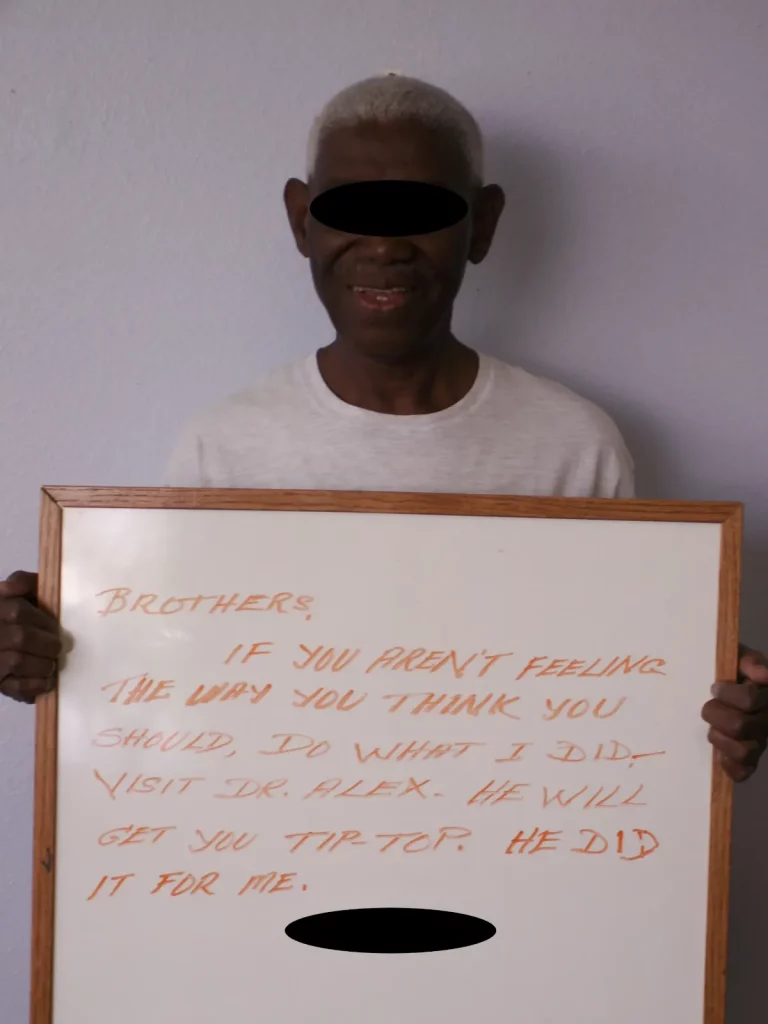 BROTHERS,
IF YOU AREN'T FEELING
THE WAY YOU THINK YOU
SHOULD, DO WHAT I DID-
VISIT DR. ALEX. HE WILL
GET YOU TIP-TOP. HE DID
IT FOR ME.